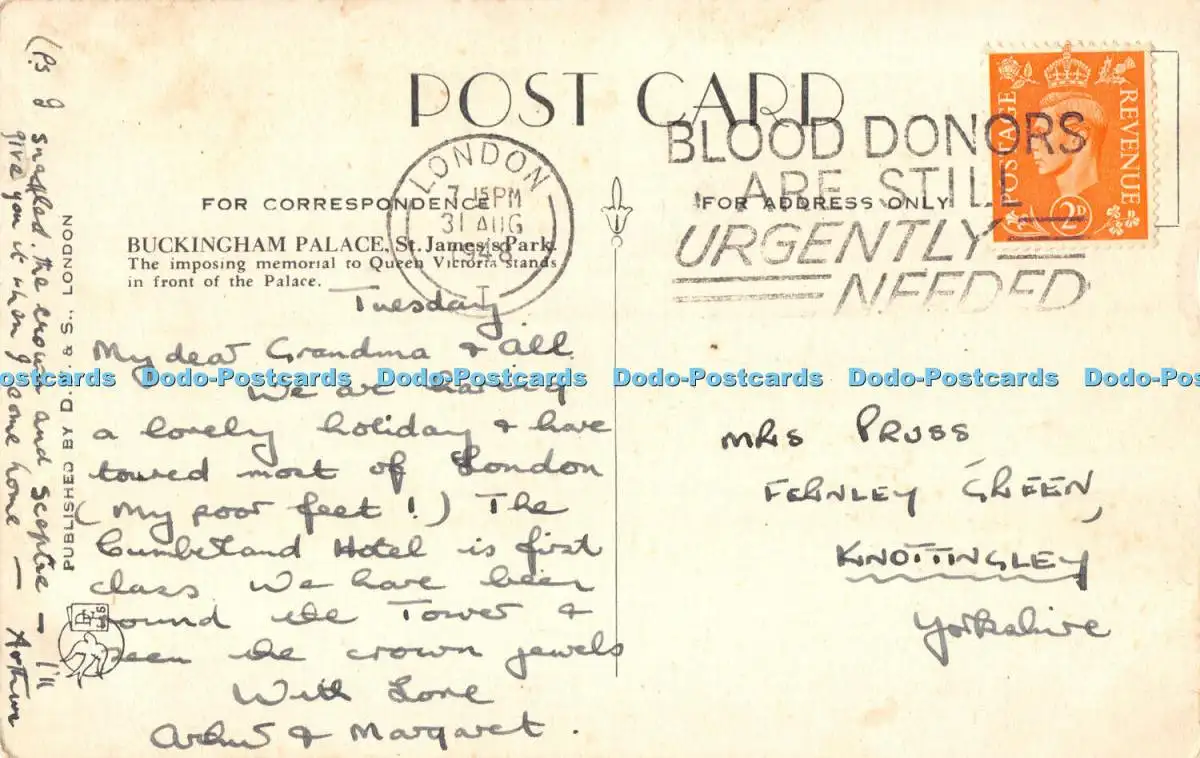 POST CARD
LONDON
7 15 PM
31 AUG
1948
BLOOD DONORS
ARE STILL
URGENTLY
NEEDED
POSTAGE
REVENUE
2D
FOR CORRESPONDENCE
FOR ADDRESS ONLY
BUCKINGHAM PALACE, St. James's Park.
The imposing memorial to Queen Victoria stands
in front of the Palace.
Tuesday
My dear Grandma & all
We are having
a lovely holiday & have
toured most of London
(My poor feet!) The
Cumberland Hotel is first
class We have been
round the Tower &
seen the crown jewels
With Love
Arthur & Margaret.
(P.S I snaffled the crown and sceptre – I'll
give you it when I come home – Arthur
PUBLISHED BY D. V & S., LONDON
MRS PRUSS
FERNLEY GREEN,
KNOTTINGLEY
Yorkshire
Dodo-Postcards Dodo-Postcards Dodo-Postcards Dodo-Postcards Dodo-Postcards